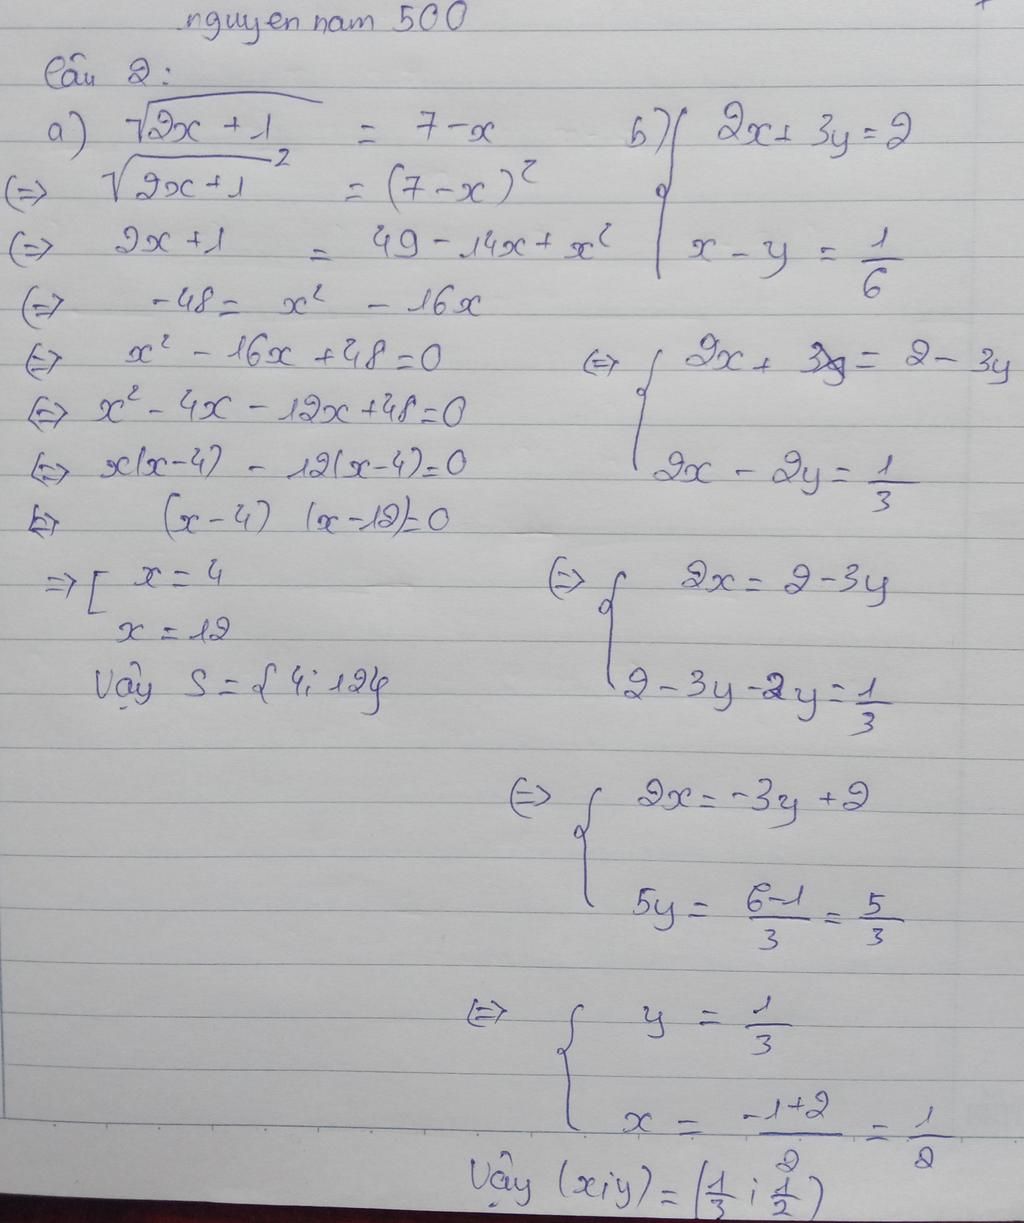 nguyen nam 500
Câu 2:
a) √(2x + 1) = 7 - x
(=> √(2x + 1)² = (7 - x)²
(=> 2x + 1 = 49 - 14x + x²
(=> -48 = x² - 16x
(=> x² - 16x + 48 = 0
(=> x² - 4x - 12x + 48 = 0
(=> x(x-4) - 12(x-4) = 0
(=> (x-4) (x-12) = 0
=> [ x = 4
x = 12
Vậy S = {4; 12}
b) { 2x + 3y = 2
x - y = 1/6
(=> { 2x + 3y = 2 - 3y
2x - 2y = 1/3
(=> { 2x = 2 - 3y
2 - 3y - 2y = 1/3
(=> { 2x = -3y + 2
5y = (6-1)/3 = 5/3
(=> { y = 1/3
x = (-1+2)/2 = 1/2
Vậy (x;y) = (1/3 ; 1/2)